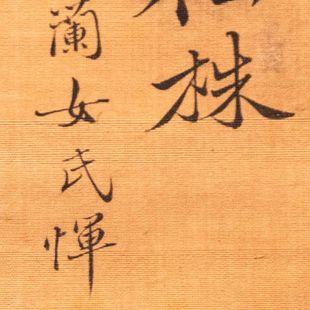 株
蘭女氏惲